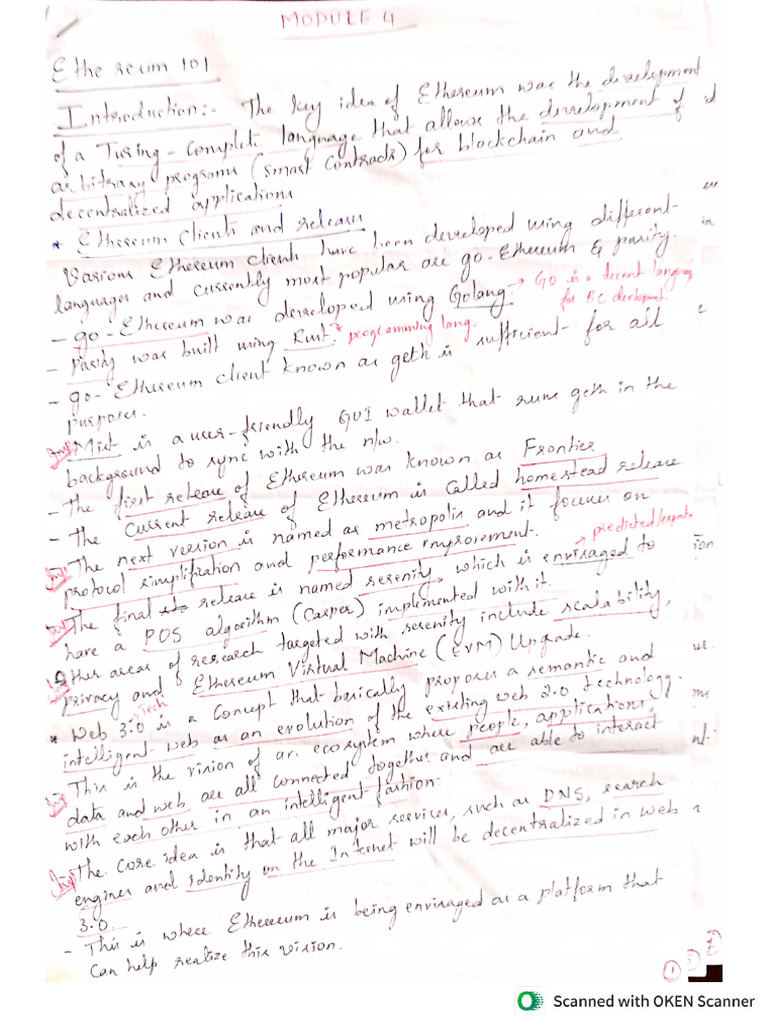 MODULE 4
Ethereum 101
Introduction:- The key idea of Ethereum was the development
of a Turing-Complete language that allows the development of
arbitrary programs (smart contracts) for blockchain and
decentralized applications
* Ethereum Clients and releases
Various Ethereum clients have been developed using different
languages and currently most popular are go-Ethereum & parity.
- go-Ethereum was developed using Golang. → GO is a decent language
for BC development
- Parity was built using Rust. → programming lang.
- go-Ethereum client known as geth is sufficient for all
purposes.
Imp Mist is a user-friendly GUI wallet that runs geth in the
background to sync with the n/w.
- The first release of Ethereum was known as Frontier
- The current release of Ethereum is called homestead release
Imp The next version is named as metropolis and it focuses on
protocol simplification and performance improvement.
→ predicted/
Imp The final release is named serenity, which is envisaged to
have a POS algorithm (Casper) implemented with it.
Imp Other areas of research targeted with serenity include scalability,
privacy and Ethereum Virtual Machine (EVM) Upgrade.
Tech
* Web 3.0 is a concept that basically proposes a semantic and
intelligent web as an evolution of the existing web 2.0 technology.
Imp This is the vision of an ecosystem where people, applications,
data and web are all connected together and are able to interact
with each other in an intelligent fashion.
Imp The core idea is that all major services, such as DNS, search
engines and identity on the Internet will be decentralized in web
3.0.
- This is where Ethereum is being envisaged as a platform that
can help realize this vision.
1
Scanned with OKEN Scanner